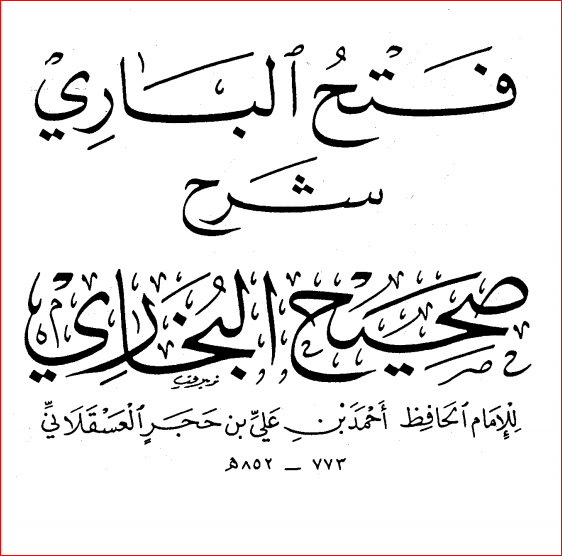 فَتْحُ ٱلبَارِي
شرح
صَحِيحِ البُخَارِي
لِلإِمَامِ ٱلحَافِظِ أَحْمَدَ بْنِ عَلِيِّ بْنِ حَجَرٍ ٱلْعَسْقَلَانِيِّ
٧٧٣ – ٨٥٢ھ